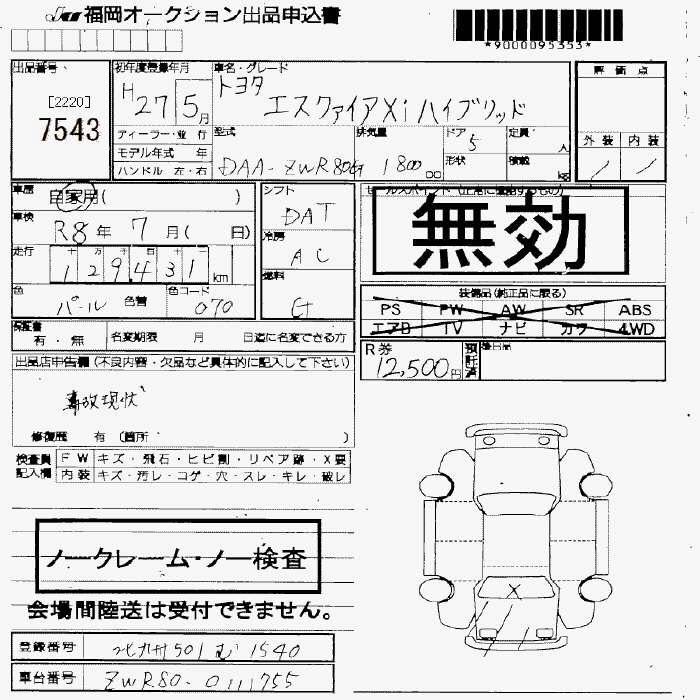 JU 福岡オークション出品申込書
*9000095353*
出品番号 初年度登録年月 車名・グレード 評価点
[2220] H 27 5月 トヨタ
7543 エスクァイア Xi ハイブリッド
ディーラー・並行 型式 排気量 ドア 定員 外装 内装
モデル年式 年 5 人
ハンドル 左・右 DAA-ZWR80G 1800 cc 形状 積載 kg
車歴 自家用( ) シフト セールスポイント(正常に機能するもの)
車検 R8年 7月( 日) DAT 無効
走行 十 万 千 百 十 一 冷房
129431 km AC
色 パール 色替 色コード 070 燃料 G 装備品(純正品に限る)
PS PW AW SR ABS
エアB TV ナビ カワ 4WD
保証書 有・無 名変期限 月 日迄に名変できる方
R券 12,500円 預託済 後日品
出品店申告欄(不良内容・欠品など具体的に記入して下さい)
事故現状
修復歴 有(箇所 )
検査員 FW キズ・飛石・ヒビ割・リペア跡・X要
記入欄 内装 キズ・汚レ・コゲ・穴・スレ・キレ・破レ
ノークレーム・ノー検査
X
会場間陸送は受付できません。
登録番号 北九州501む1540
車台番号 ZWR80-0111755